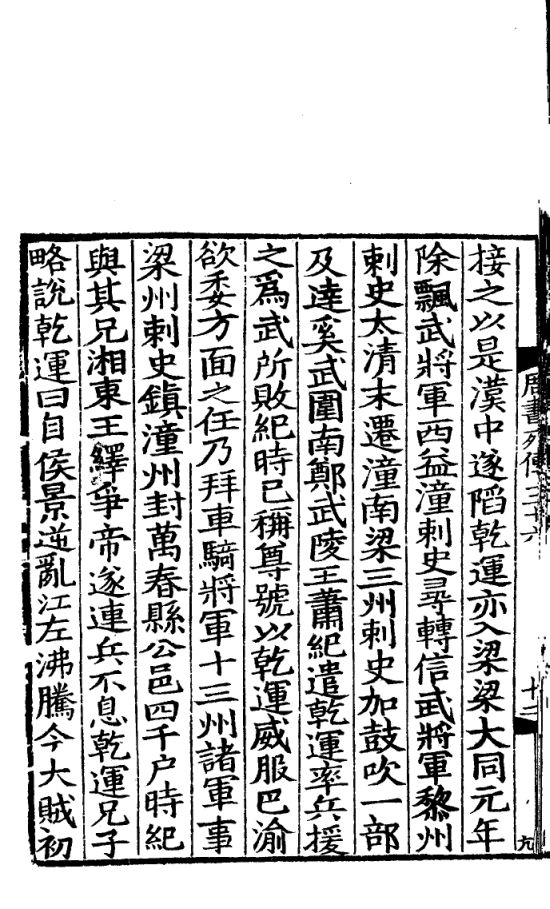 接之以是漢中遂䧟乾運亦入梁梁大同元年
除飄武將軍西益潼刺史尋轉信武將軍黎州
刺史太清末遷潼南梁三州刺史加鼓吹一部
及達奚武圍南鄭武陵王蕭紀遣乾運率兵援
之爲武所敗紀時已稱尊號以乾運威服巴渝
欲委方面之任乃拜車騎將軍十三州諸軍事
梁州刺史鎮潼州封萬春縣公邑四千户時紀
與其兄湘東王繹爭帝遂連兵不息乾運兄子
略說乾運曰自侯景逆亂江左沸騰今大賊初
周書列傳三十六